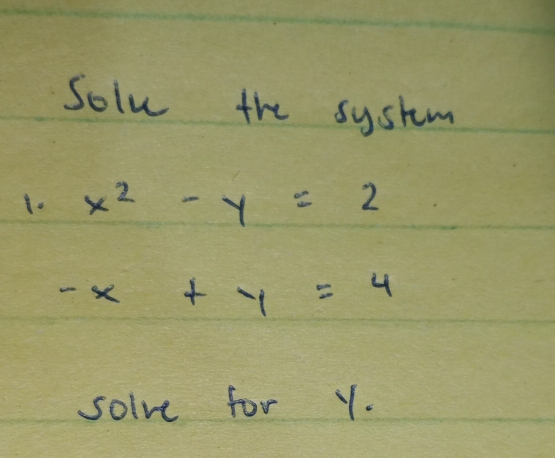 Solve the system
1. x² - y = 2
-x + y = 4
solve for y.